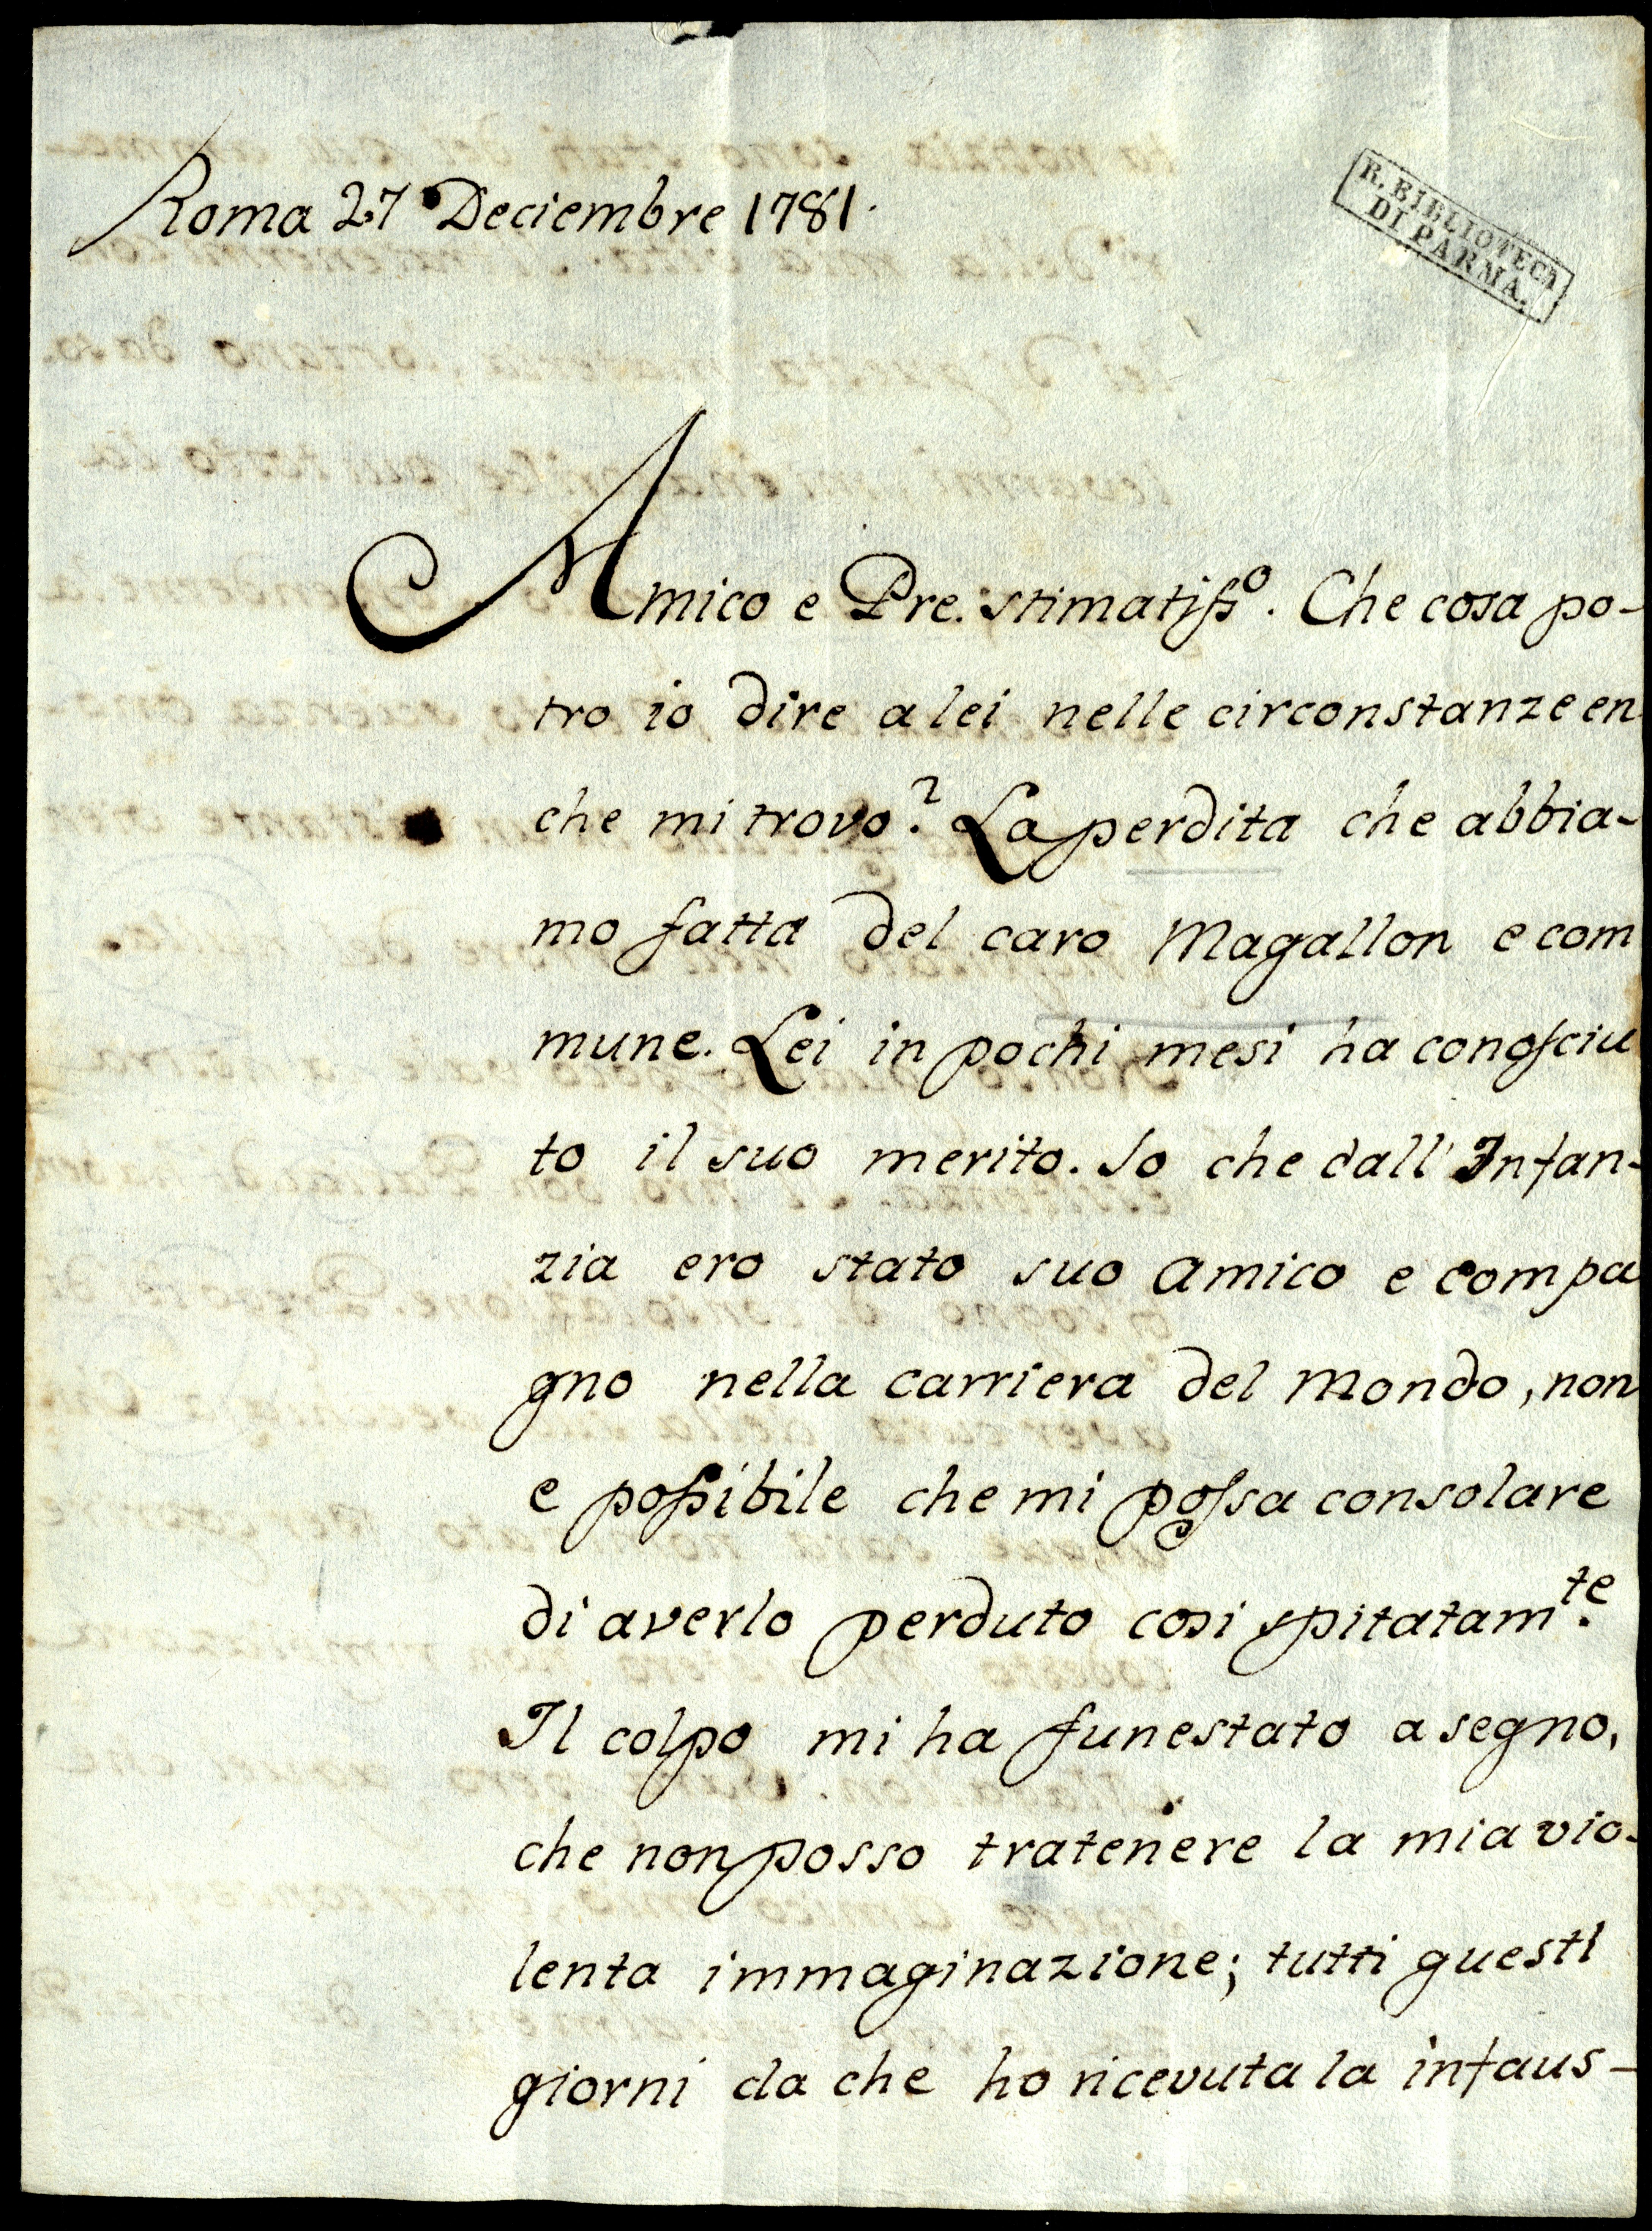 Roma 27 Deciembre 1781.
R. BIBLIOTECA
DI PARMA.
Amico e Pre. stimatisso. Che cosa po-
tro io dire a lei nelle circonstanze en
che mi trovo? La perdita che abbia-
mo fatta del caro Magallon e com
mune. Lei in pochi mesi ha conosciu
to il suo merito. Io che dall' Infan-
zia ero stato suo amico e compa
gno nella carriera del mondo, non
e possibile che mi possa consolare
di averlo perduto cosi spitatamte.
Il colpo mi ha funestato a segno,
che non posso tratenere la mia vio-
lenta immaginazione; tutti questi
giorni da che ho ricevuta la infaus-